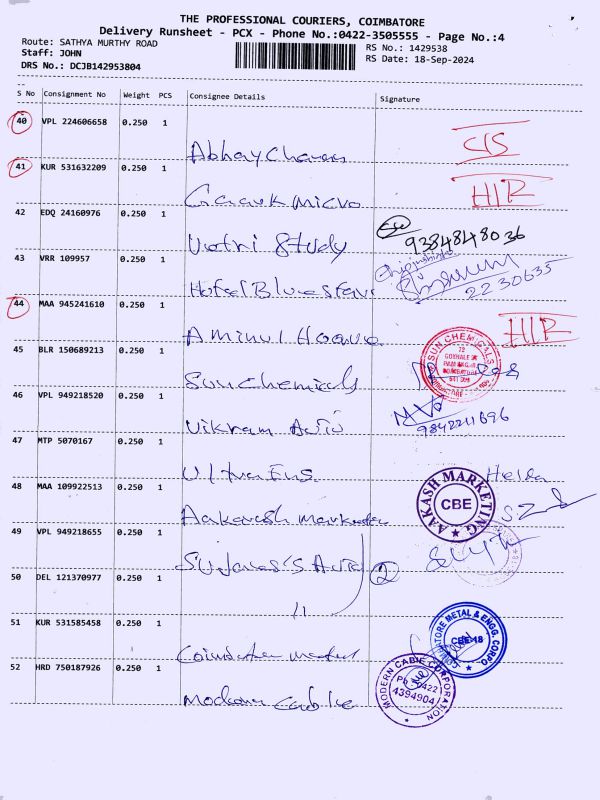 THE PROFESSIONAL COURIERS, COIMBATORE
Delivery Runsheet - PCX - Phone No.:0422-3505555 - Page No.:4
Route: SATHYA MURTHY ROAD
RS No.: 1429538
Staff: JOHN
RS Date: 18-Sep-2024
DRS No.: DCJB142953804
S No Consignment No Weight PCS Consignee Details Signature
40 VPL 224606658 0.250 1
Abhay Charan
41 KUR 531632209 0.250 1
Micro HIR
42 EDQ 24160976 0.250 1
Study 9384848036
43 VRR 109957 0.250 1
Hotel Bluestar 2230635
44 MAA 945241610 0.250 1
Aminul HIR
45 BLR 150689213 0.250 1
Sun Chemicals SUN CHEMICALS
46 VPL 949218520 0.250 1
Vikram Auto 9842211696
47 MTP 5070167 0.250 1
Ultra Ens
48 MAA 109922513 0.250 1
AAKASH MARKETING CBE
49 VPL 949218655 0.250 1
Auto 2
50 DEL 121370977 0.250 1
11
51 KUR 531585458 0.250 1
COIMBATORE METAL & ENGG. CORPO. CBE-18
52 HRD 750187926 0.250 1
Modern Cable MODERN CABLE CORPORATION 4394904